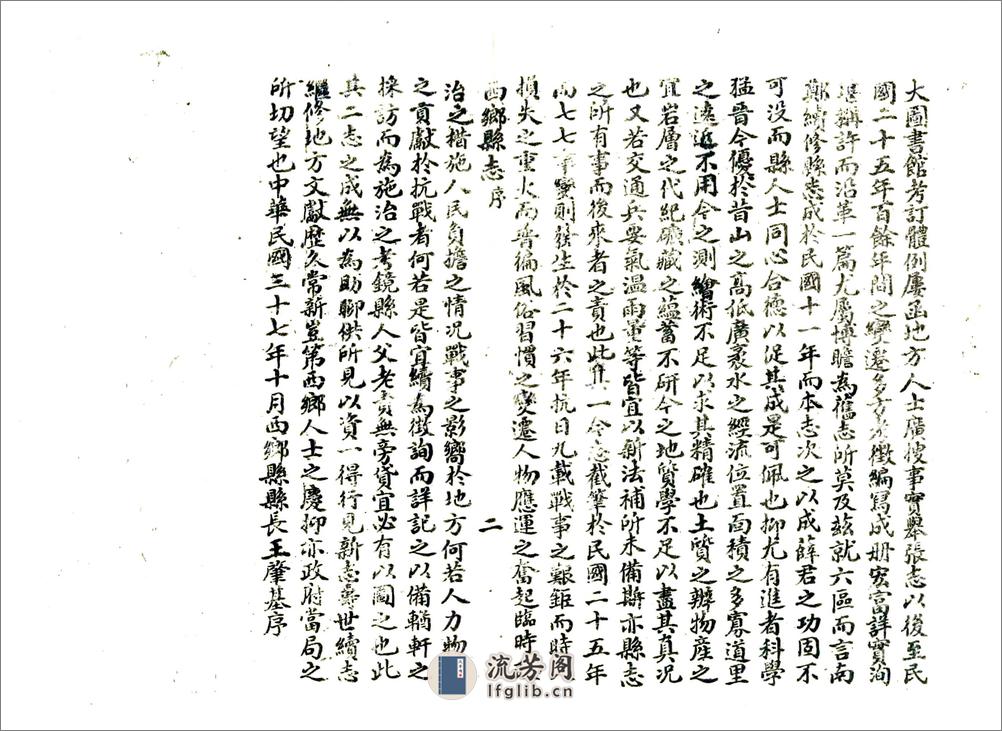 大圖書館考訂體例屢函地方人士廣搜事實舉張志以後至民
國二十五年百餘年間之變遷多方考徵編寫成册宏富詳實洵
堪辦許而沿革一篇尤屬博瞻為舊志所莫及兹就六區而言南
鄭續修縣志成於民國十一年而本志次之以成薛君之功固不
可没而縣人士同心合德以促其成是可佩也抑尤有進者科學
猛晉今優於昔山之高低廣袤水之經流位置面積之多寡道里
之遠近不用今之測繪術不足以求其精確也土質之辨物産之
宜岩層之代紀礦藏之蘊蓄不研今之地質學不足以盡其真況
也又若交通兵要氣温雨量等皆宜以新法補所未備斯亦縣志
之所有事而後來者之責也此其一今志截肇於民國二十五年
而七七事變則發生於二十六年抗日九載戰事之艱鉅而時
損失之重大而普徧風俗習慣之變遷人物應運之奮起臨時
西鄉縣志 序 二
治之楷施人民負擔之情况戰事之影嚮於地方何若人力物
之貢獻於抗戰者何若是皆宜續為徵詢而詳記之以備輶軒之
採訪而為施治之考鏡縣人父老責無旁貸宜必有以圖之也此
其二志之成無以為助聊供所見以資一得行見新志壽世續志
繼修地方文獻歷久常新豈第西鄉人士之慶抑亦政府當局之
所切望也中華民國三十七年十月西鄉縣縣長王肇基序
流芳阁
lfglib.cn